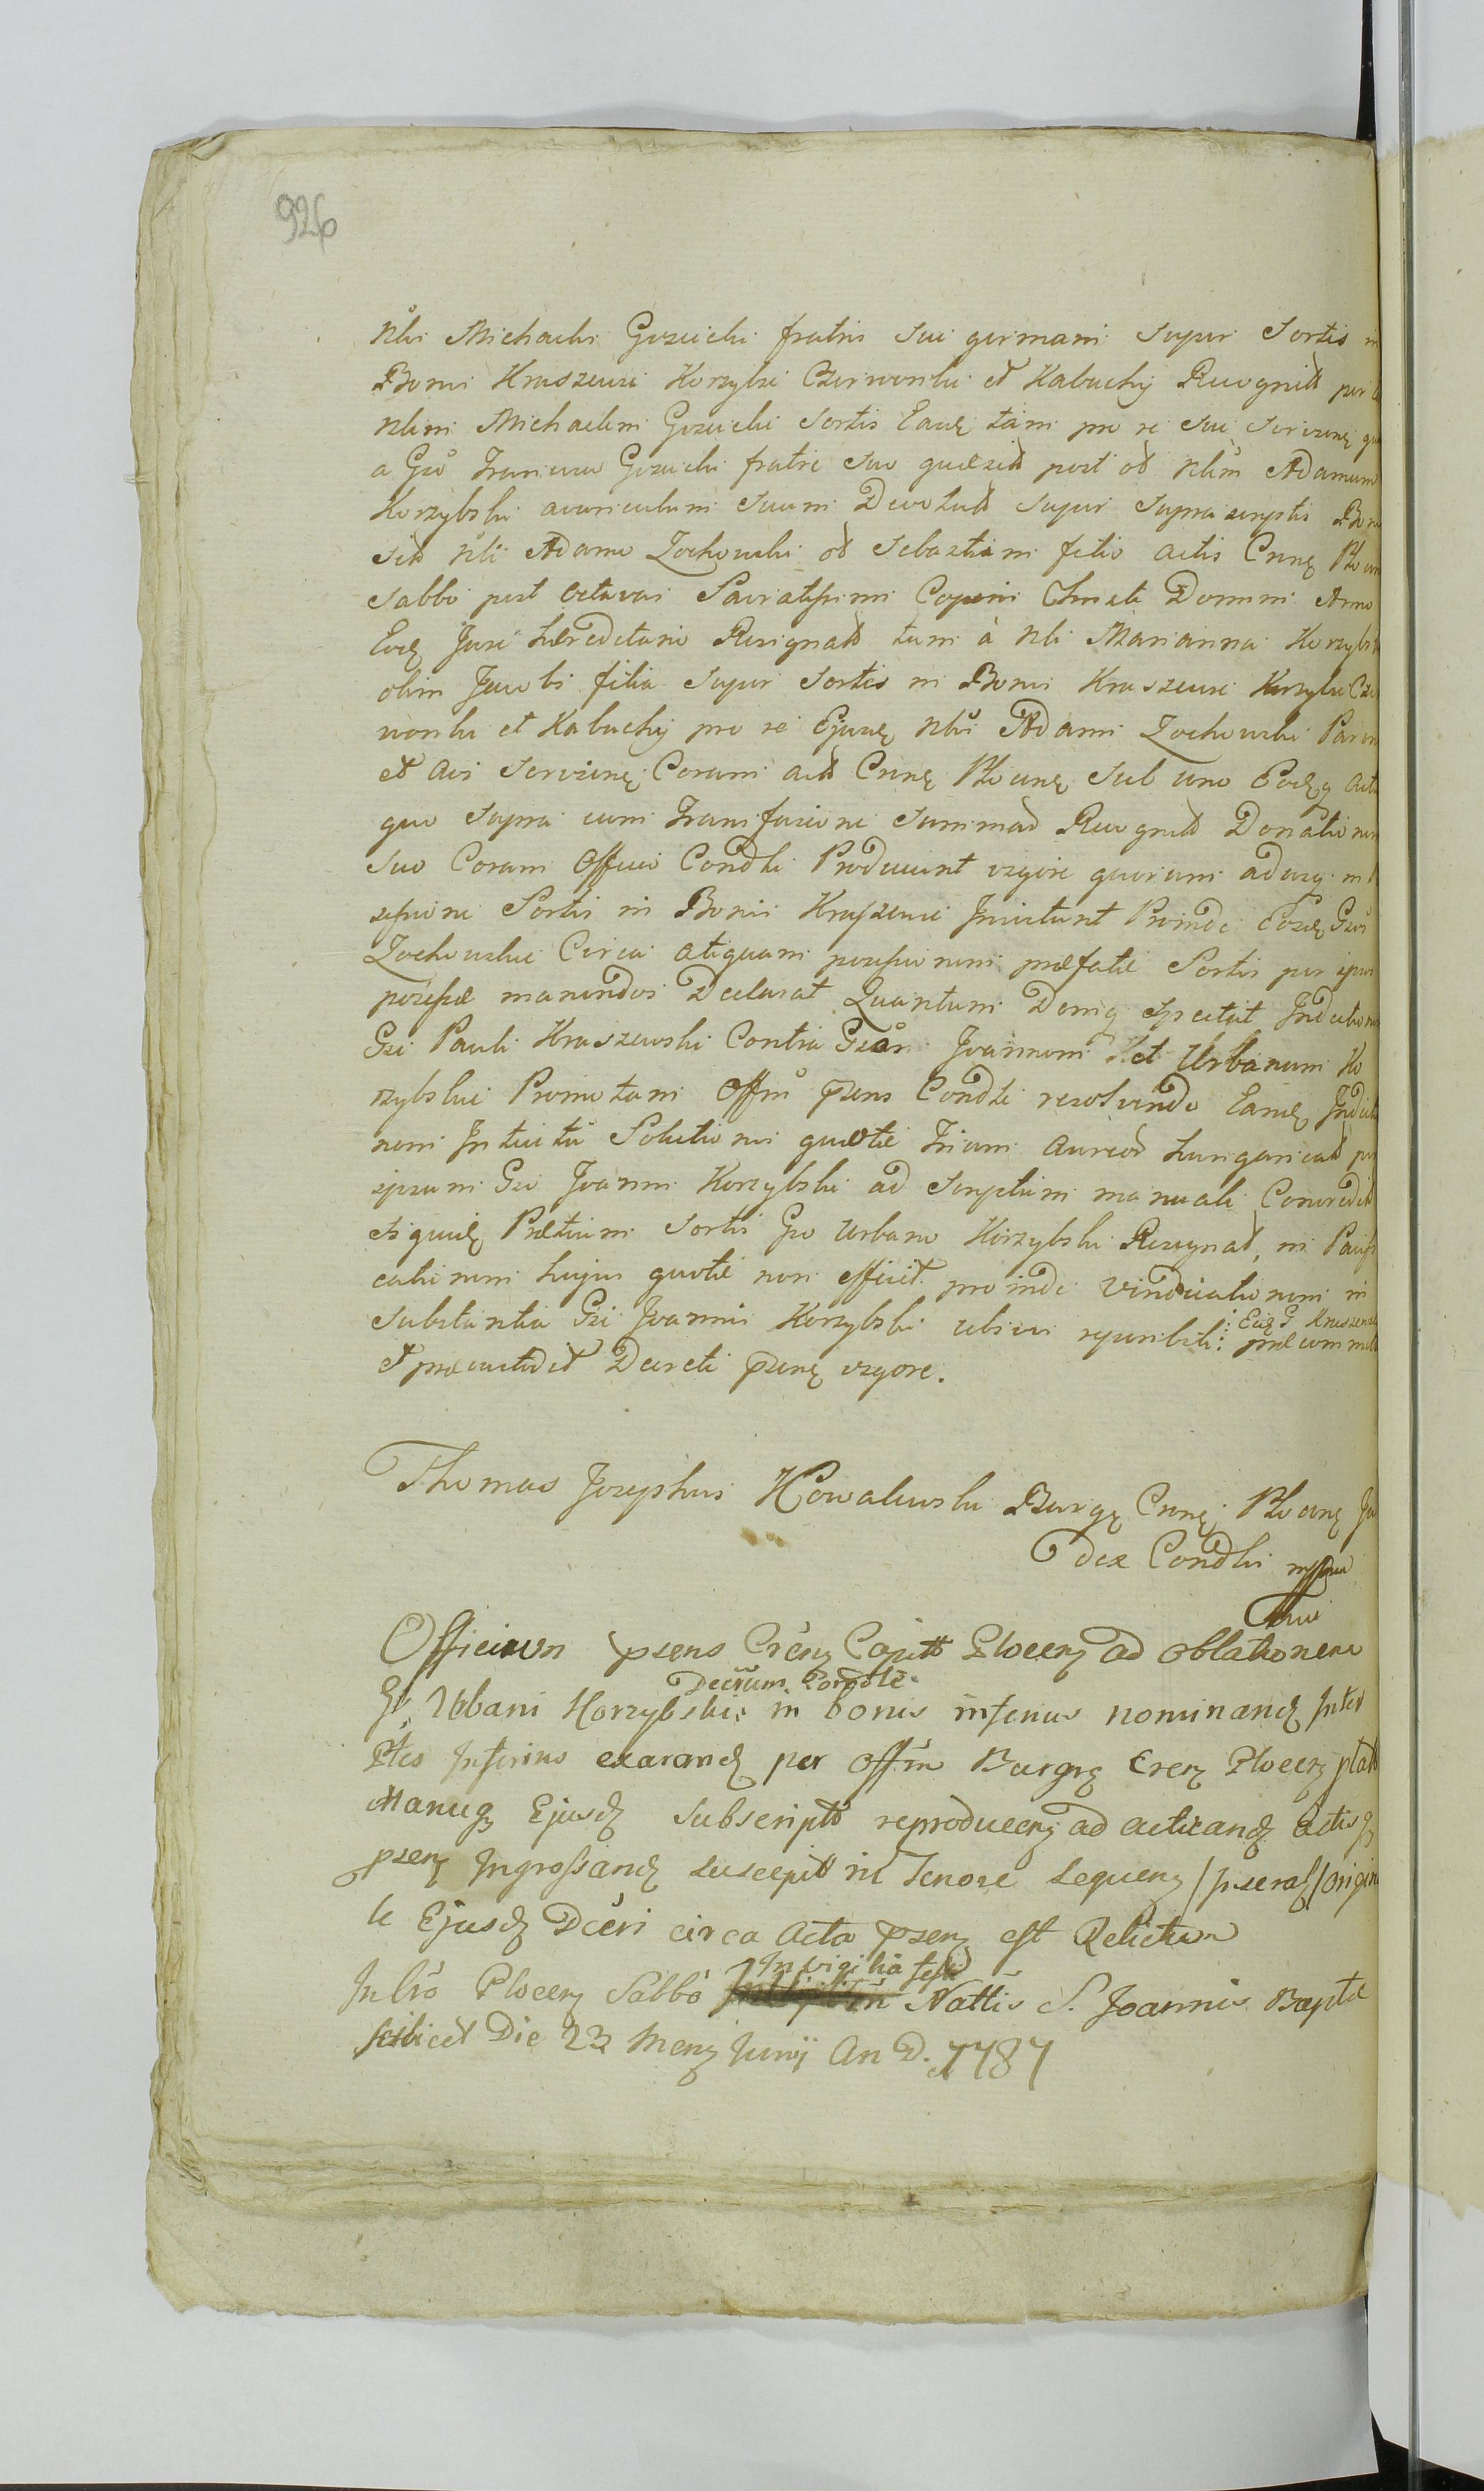 926
Nbi Michaelis Gozdicki fratris sui germani super Sortes in
Bonis Kraszewo Korzybie Czerwonki et Kabachy Recognitt per
Nbilem Michaelem Gozdicki Sortis Eande tam pro se sui servien
a Gso Francisco Gozdicki fratre suo quaesitt post ob Nblem Adamum
Korzybski avunculum suum Devolutt super suprascriptis Bonis
sed Nbli Adamo Zochowski ob Sebastiani filio actis Crnę Plocen
Sabbo post Octavas Sacratissimi Corporis Christi Domini Anno
Eode Jure haereditario Resignatt tum à Nbli Marianna Korzybska
olim Jacobi filia super Sortes in Bonis Kraszewo Korzybie Czer
wonki et Kabachy pro se Ejusdę Nblis Adami Zochowski Paren
et Avi servienę Coram actt Crnę Plocenę sub uno Eodęq Actu
quo supra cum Transfusione Summarr Recognitt Donationem
suo Coram Officio Condli Producunt vigore quorum adusq in
sessione Sortis in Bonis Kraszewo Invitunt Proinde Eosdę Gsos
Zochowskie Circa aliquam possessionem praefatae Sortis per ipsos
possessae manendos Declarat. Quantum Deniq spectat Inductionem
Gsi Pauli Kraszewski Contra Gsos Joannem et Urbanum Ko
rzybskie Promotam Offm psens Condle resolvendo Eamdę Inducti
onem Intuitu Solutionis quotae Trium Aureorr hungaricalt per
ipsum Gso Joanni Korzybski ad Scriptum manuale Concredit
siquidę Praetium Sortis Gso Urbano Korzybski Resignatt, in Pacifi
cationem hujus quotae non efficit proinde vindicationem in
Substantia Gsi Joannis Korzybski ubivis reperibili :Eidę G Kraszewski: praecommitt
et praecustodit Decreti psenę vigore.
Thomas Josephus Kowalewski Burgę Crnę Plocenę Ju
dex Condlis mppria
Officium psens Crenę Capitt Plocenę ad oblationem
Gsi Urbani Korzybski Decrum Condle in bonis inferius nominandę Inter
Ptes Inferius exarandę per offm Burgrę Crenę Plocenę platt
Manuq Ejusdę Subscriptt reproducenę ad acticandę Actisq
psenę Ingrossandę suscepitt in Tenore Sequenę /Inseratt/ Origina
le Ejusdę Dcri circa Acta psenę est Relictum
In Cro Plocenę Sabbo In vigilia festi Nattis S. Joannis Baptae
scilicet Die 23 Mensę Junij An D. 1787